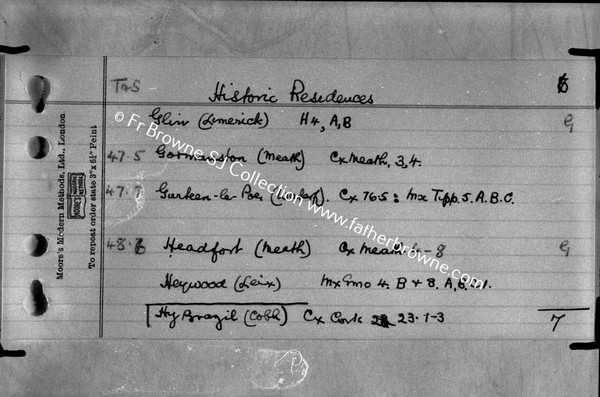 T&S Historic Residences
Glin (Limerick) H4, A, B G
47.5 Gormanston (Meath) Cx Meath, 3, 4.
47.7 Gurteen-le-Poer Cx 765: Mx Tipp. 5. A. B. C.
48.6 Headfort (Meath) Cx Meath 6-8 G
Heywood (Leix) Mx Emo 4. B + 8. A, B.
Hy Brazil (Cobh) Cx Cork 23. 1-3 7
Moore's Modern Methods, Ltd., London.
To repeat order state 3" x 6½" Feint
© Fr Browne SJ Collection www.fatherbrowne.com